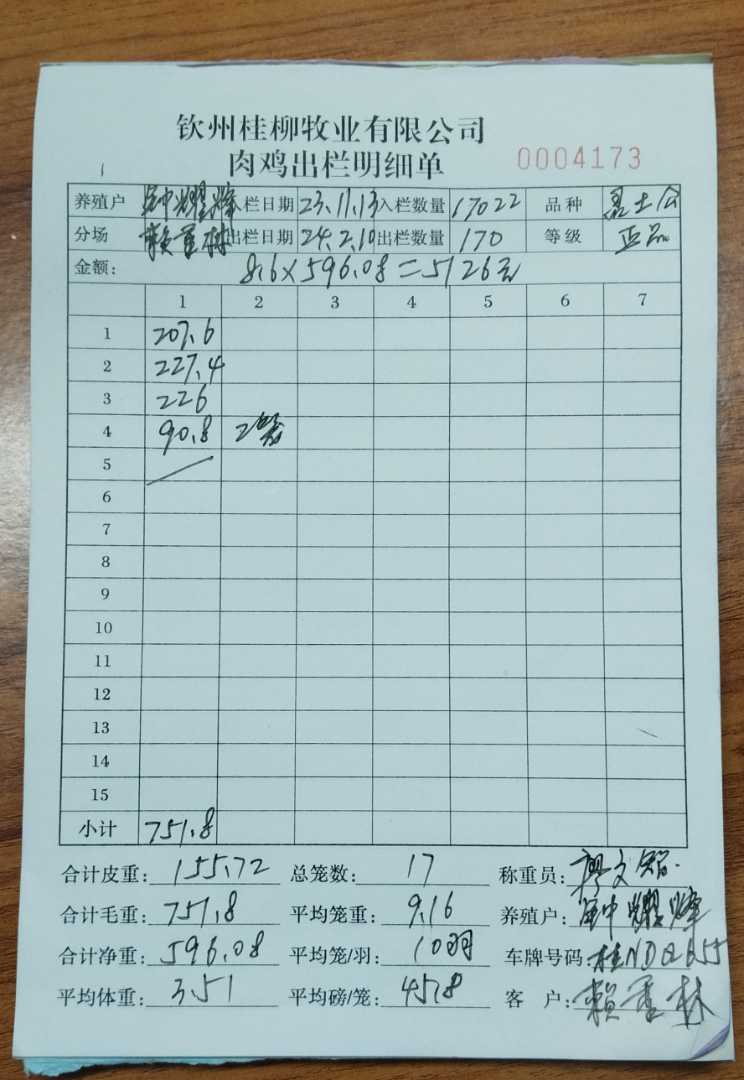 钦州桂柳牧业有限公司
肉鸡出栏明细单 0004173
养殖户 钟耀辉 入栏日期 23.11.13 入栏数量 17022 品种 土公
分场 出栏日期 24.2.10 出栏数量 170 等级 正品
金额: 8.6×596.08=5126元
1 2 3 4 5 6 7
1 207.6
2 227.4
3 226
4 90.8 2笼
5
6
7
8
9
10
11
12
13
14
15
小计 751.8
合计皮重: 155.72 总笼数: 17 称重员: 文
合计毛重: 751.8 平均笼重: 9.16 养殖户: 钟耀辉
合计净重: 596.08 平均笼/羽: 10羽 车牌号码: 桂NDQ655
平均体重: 3.51 平均磅/笼: 45.8 客 户: 賴 林